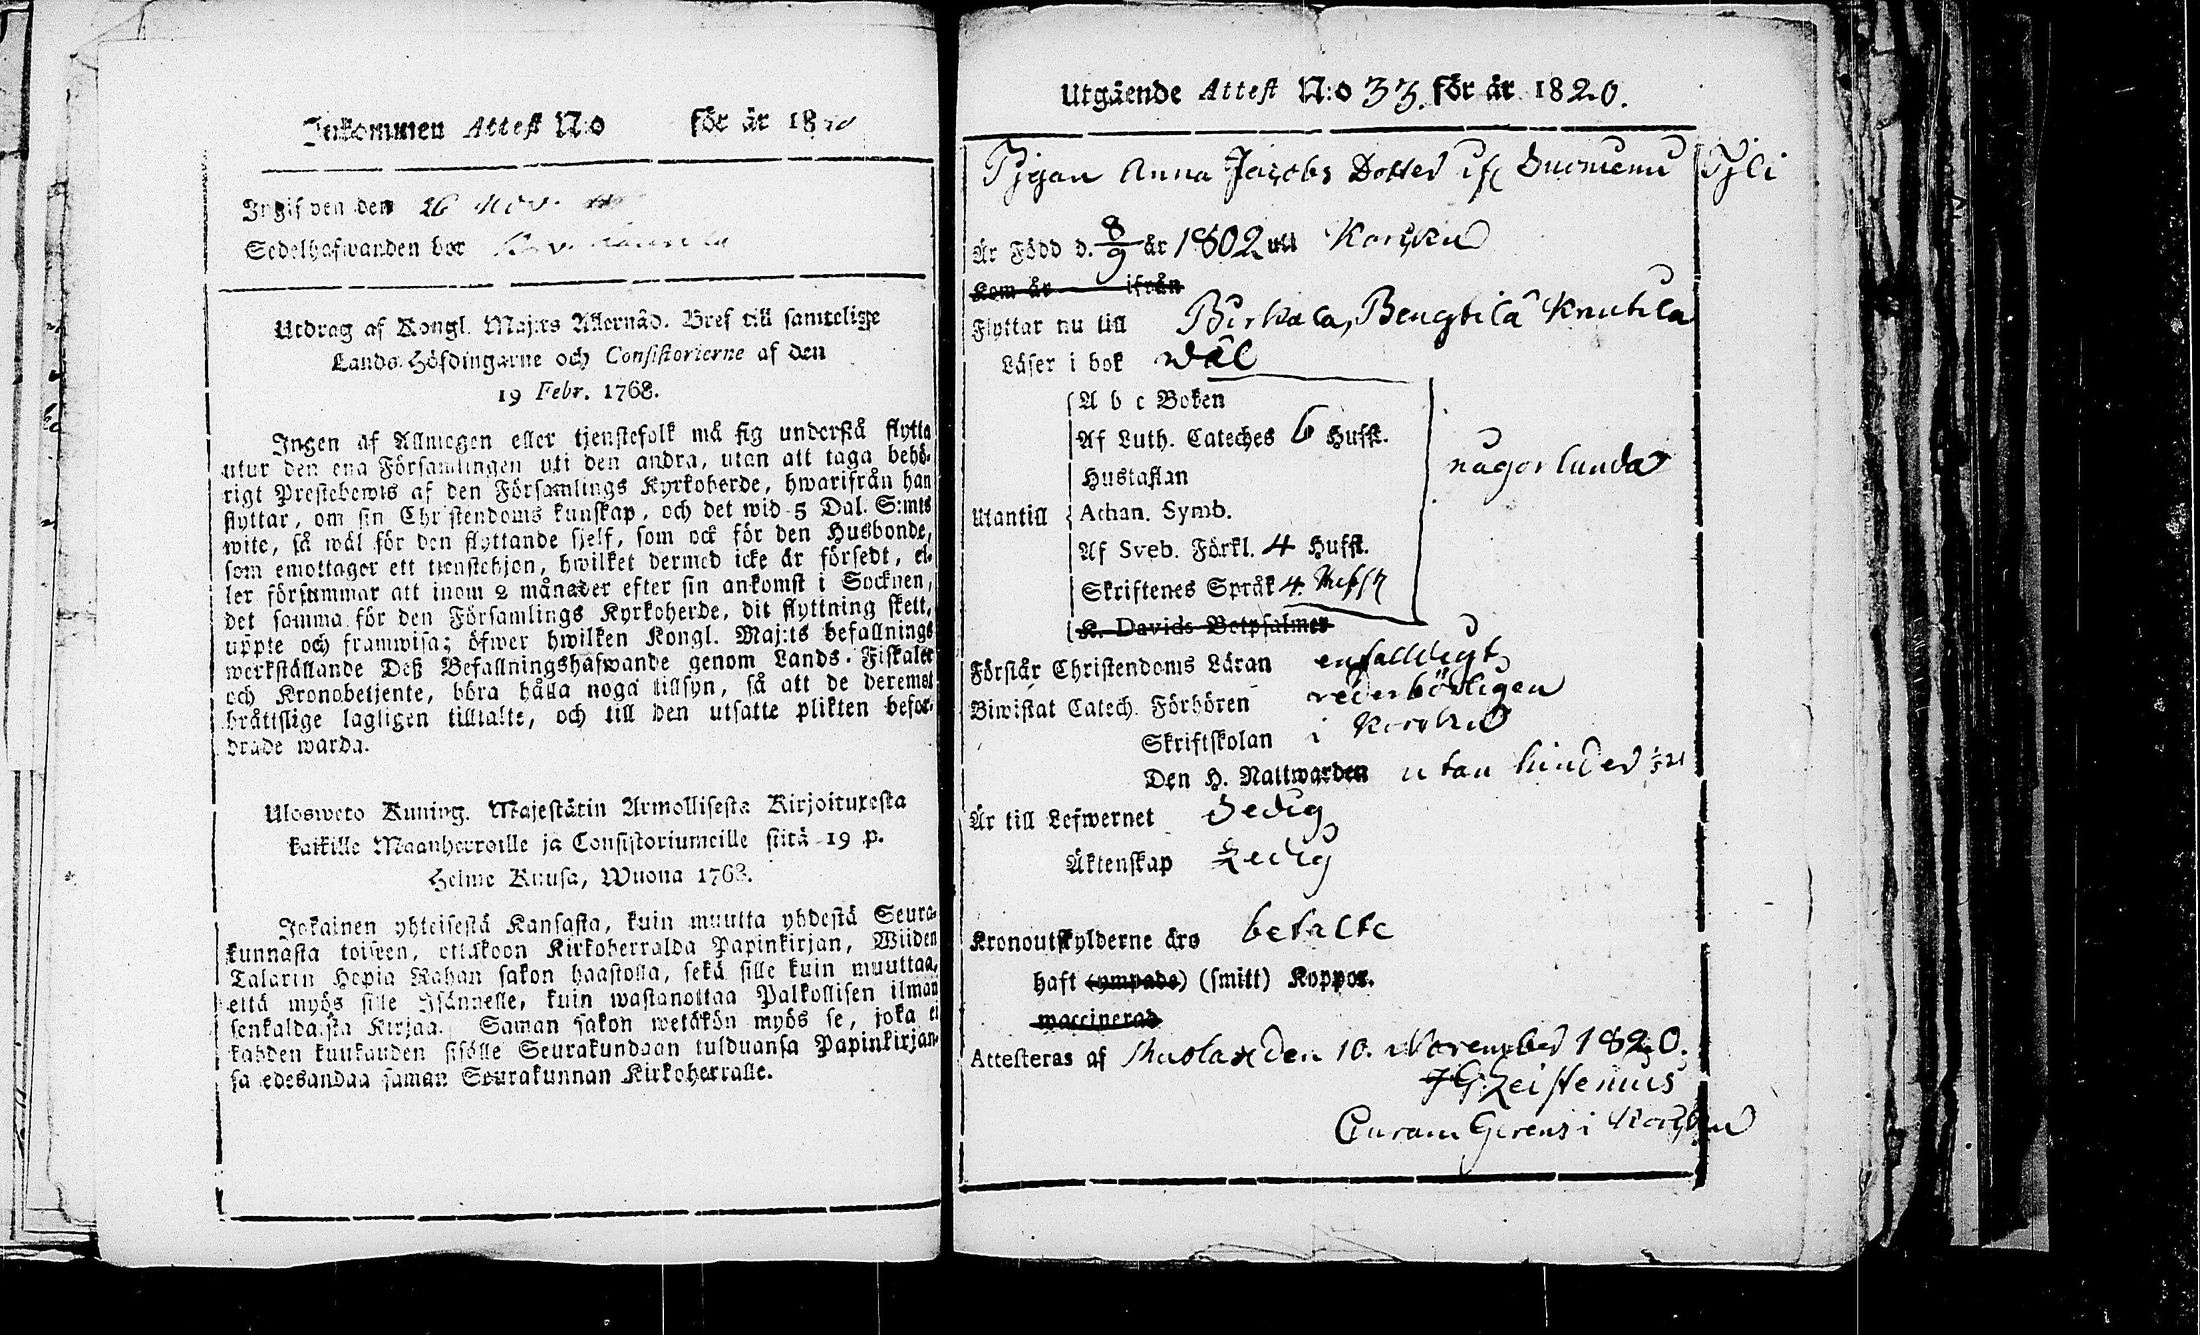 Inkommen Attest N:o för är 1820
Ingifven den 26 Nov.
Sedelhafwanden bor
Utdrag af Kongl. Maj:ts Allernåd. Bref till samtelige
Lands-Höfdingarne och Consistorierne af den
19 Febr. 1768.
Ingen af Allmogen eller tjenstefolk må sig understå flytta
utur den ena Församlingen uti den andra, utan att taga behö-
rigt Prestebewis af den Församlings Kyrkoherde, hwarifrån han
flyttar, om sin Christendoms kunskap, och det wid 5 Dal. S:mts
wite, så wäl för den flyttande sjelf, som ock för den Husbonde,
som emottager ett tjenstehjon, hwilket dermed icke är försedt, el-
ler försummar att inom 2 månader efter sin ankomst i Socknen,
det samma för den Församlings Kyrkoherde, dit flyttning skett,
uppte och framwisa; öfwer hwilken Kongl. Maj:ts befallnings
werkställande Deß Befallningshafwande genom Lands-Fiskaler
och Kronobetjente, böra hålla noga tillsyn, så att de deremot
bråttslige lagligen tilltalte, och till den utsatte plikten befor-
drade warda.
Ulosweto Kuning. Majestätin Armollisesta Kirjoituxesta
kaikille Maanherroille ja Consistoriumeille siitä 19 p.
Helme Kuusa, Wuona 1768.
Jokainen yhteisestä Kansasta, kuin muutta yhdestä Seura-
kunnasta toiseen, ottakoon Kirkoherralda Papinkirjan, Wiiden
Talarin Hopia Rahan sakon haastolla, sekä sille kuin muuttaa,
että myös sille Isännelle, kuin wastanottaa Palkollisen ilman
senkaldaista Kirjaa. Saman sakon wetäkön myös se, joka ei
kahden kuukauden sisälle Seurakundaan tulduansa Papinkirjan-
sa edesandaa saman Seurakunnan Kirkoherralle.
Utgäende Attest N:o 33. för är 1820.
Pigan Anna Jacobs Dotter ifr Suomenu
Är Född d. 8/9 är 1802 uti Karkku
Kom är ifrån
Flyttar nu till Birkala, Bengtilä Knutila
Läser i bok wäl
A b c Boken
Af Luth. Cateches 6 Hufst.
Hustaflan
någorlunda
Utantill
Athan. Symb.
Af Sveb. Förkl. 4 Hufst.
Skriftenes Språk 4. Hufst
K. Davids Botpsalmer
Förstår Christendoms Läran enfaldigt
Biwistat Catech. Förhören wederbörligen
Skriftskolan i Karkku
Den H. Nattwarden utan hinder
Är till Lefwernet Sedig
Äktenskap Ledig
Kronoutskylderne äro betalte
haft (ympade) (smitt) Koppor.
waccinerad
Attesteras af den 10. November 1820.
Curam Gerens i Karkku